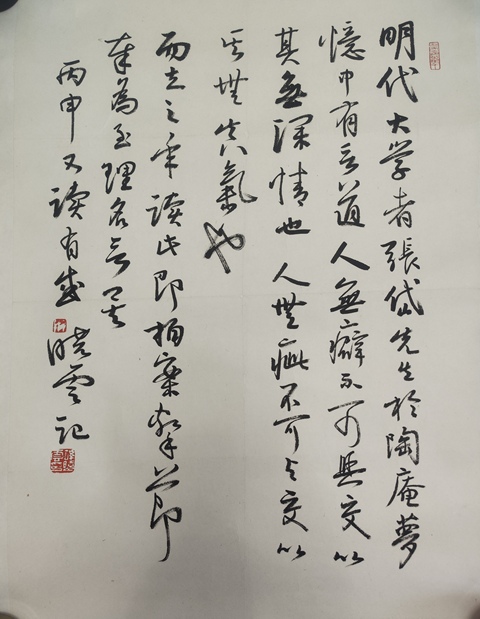 明代大学者張岱先生於陶庵夢
憶中有言道人無癖不可與交以
其無深情也人無疵不可与交以
其無真氣也
而立之年讀此即拍案擊節即
奉為至理名言矣
丙申又讀有感
曉雲记